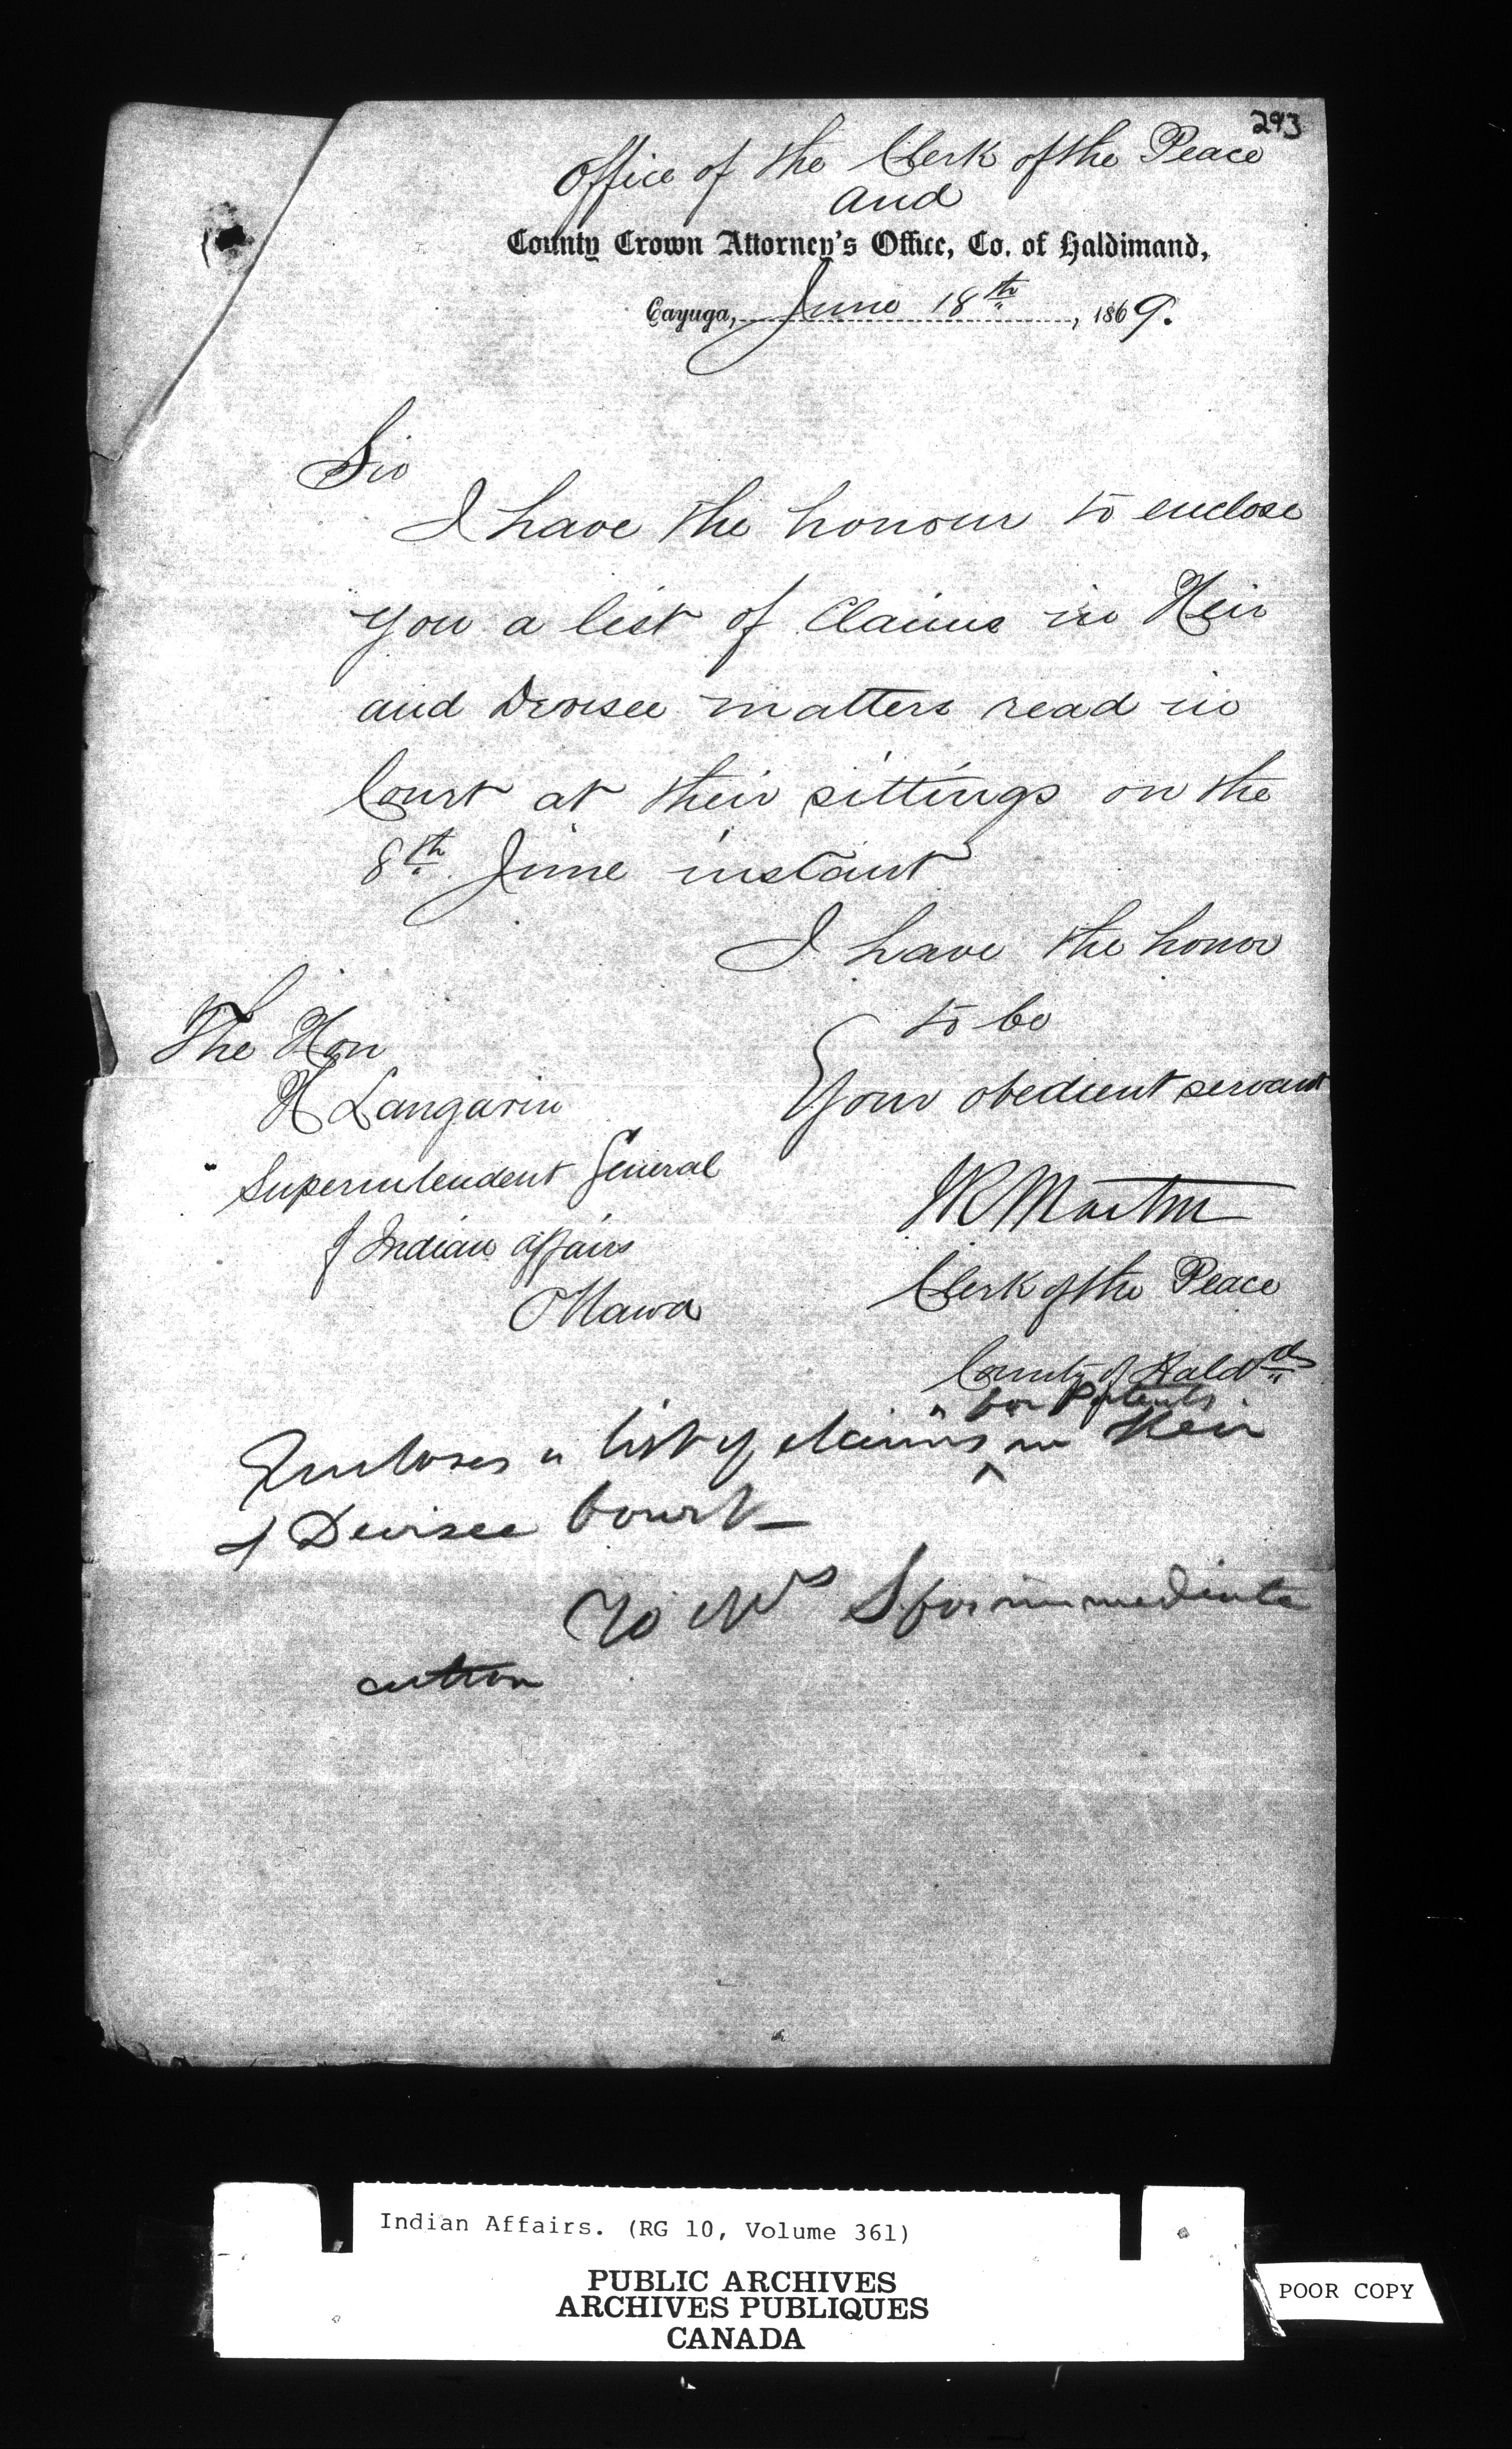 293
Office of the Clerk of the Peace
and
County Crown Attorney's Office, Co. of Haldimand,
Cayuga, June 18th, 1869.
Sir
I have the honour to enclose
you a list of Claims in Heir
and Devisee matters read in
Court at their sittings on the
8th June instant
I have the honor
to be
Your obedient servant
The Hon
H Langavin
Superintendent General
of Indian affairs
Ottawa
Martin
Clerk of the Peace
County of Hald
for Patents
Encloses a list of claims in Heir
& Devisee Court
To for immediate
action
Indian Affairs. (RG 10, Volume 361)
PUBLIC ARCHIVES
ARCHIVES PUBLIQUES
CANADA
POOR COPY